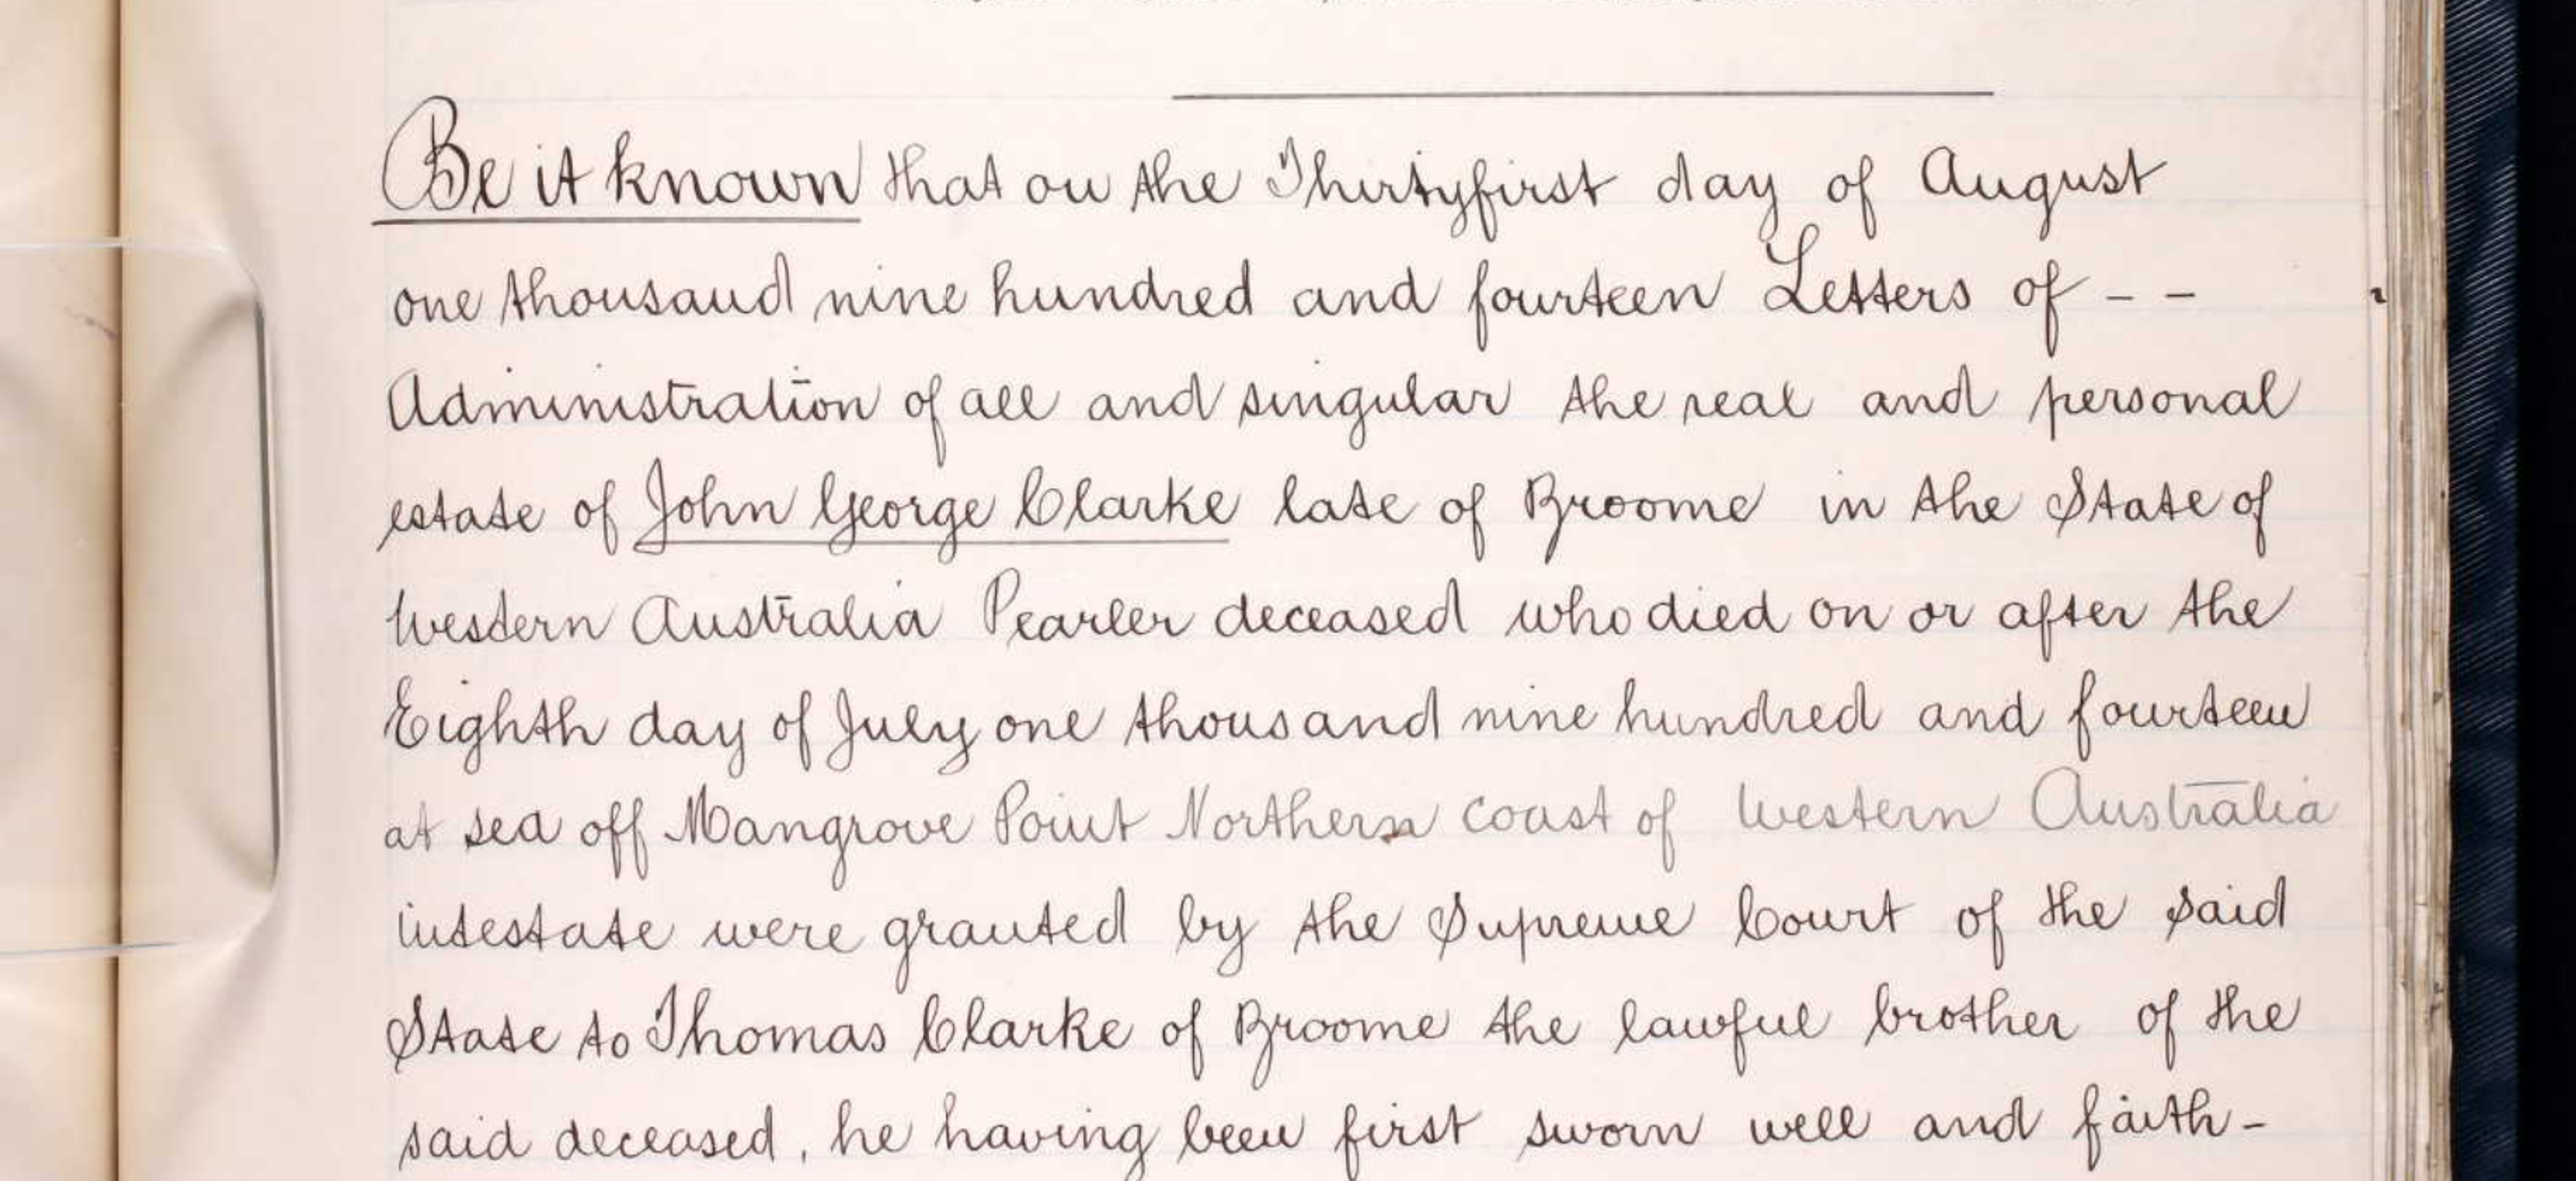 Be it known that on the Thirtyfirst day of August
one thousand nine hundred and fourteen Letters of - -
Administration of all and singular the real and personal
estate of John George Clarke late of Broome in the State of
Western Australia Pearler deceased who died on or after the
Eighth day of July one thousand nine hundred and fourteen
at sea off Mangrove Point Northern coast of Western Australia
intestate were granted by the Supreme Court of the said
State to Thomas Clarke of Broome the lawful brother of the
said deceased, he having been first sworn well and faith-